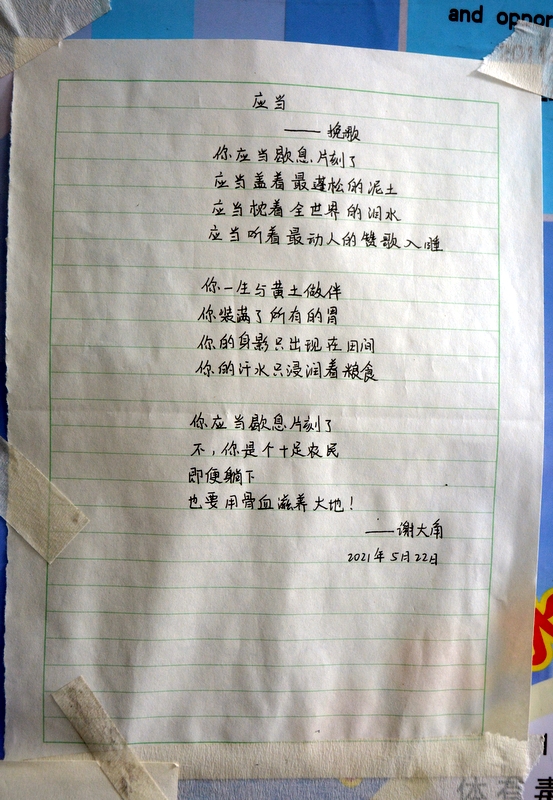 and oppor
应当
——挽歌
你应当歇息片刻了
应当盖着最蓬松的泥土
应当枕着全世界的泪水
应当听着最动人的赞歌入睡
你一生与黄土做伴
你装满了所有的胃
你的身影只出现在田间
你的汗水只浸润着粮食
你应当歇息片刻了
不，你是个十足农民
即便躺下
也要用骨血滋养大地！
——谢大角
2021年5月22日
体育